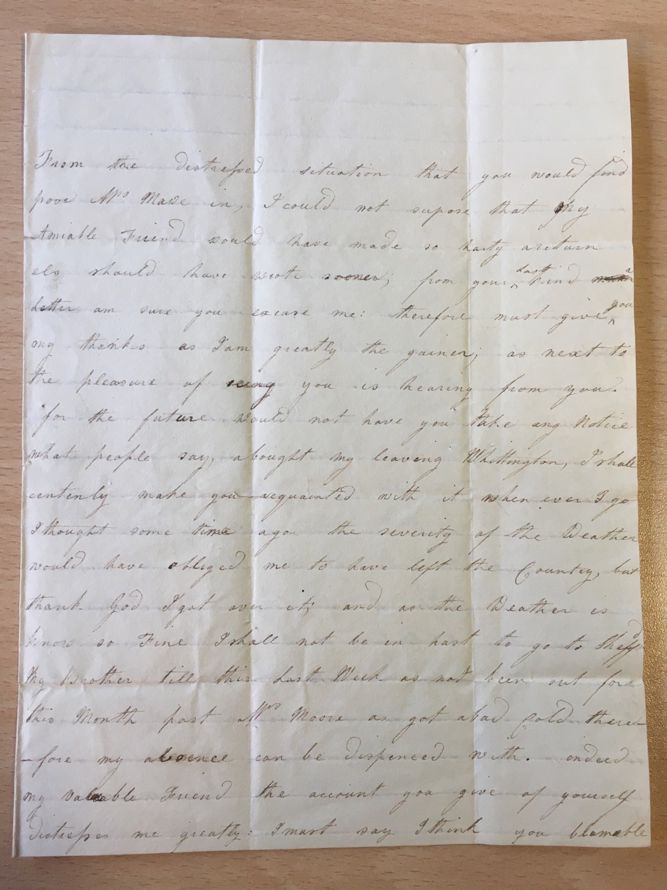 From the distressed situation that you would find
poor Mrs Mase in, I could not supose that My
Amiable Friend would have made so hasty areturn
els should have wrote sooner; from your last kind
letter am sure you excuse me: therefore must give you
my thanks as I am greatly the gainer; as next to
the pleasure of seeing you is hearing from you.
for the future would not have you take any Notice
what people say abought my leaving Whittington, I shall
centenly make you acquainted with it when ever I go
I thought some time agon the severity of the Weather
would have obleged me to have left the Country, but
thank God I got over it; and as the Weather is
know so Fine I shall not be in hast to go to Sheffd
My Brother till this Last Week as not been out fore
this Month past Mrs Moore as got abad Cold there-
-fore my absence can be dispenced with. indeed
my valuable Friend the account you give of yourself
distresses me greatly: I must say I think you blameable